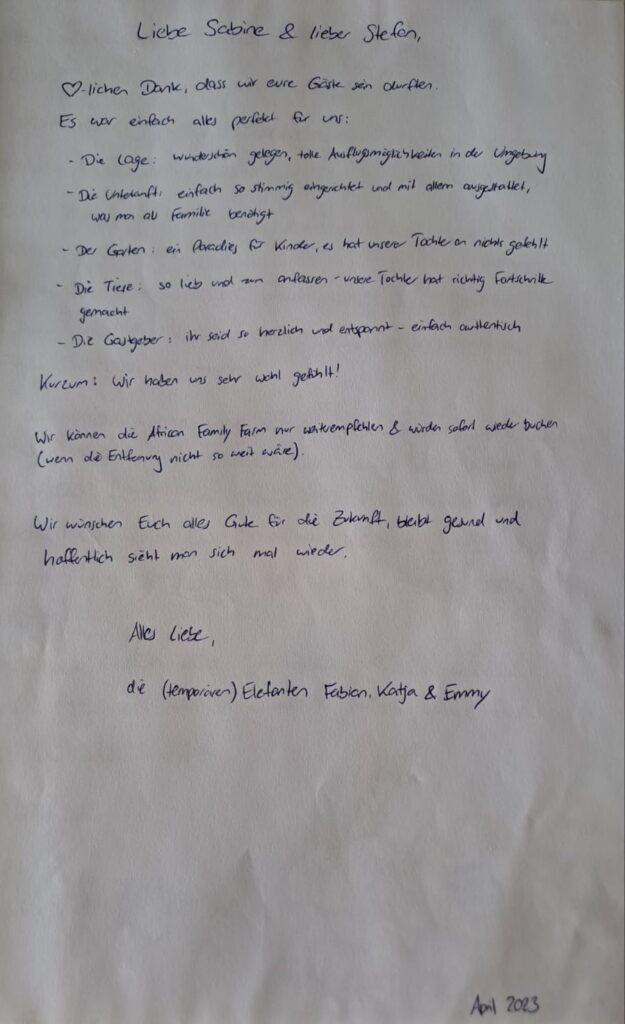 Liebe Sabine & lieber Stefan,
♡-lichen Dank, dass wir eure Gäste sein durften.
Es war einfach alles perfekt für uns:
- Die Lage: wunderschön gelegen, tolle Ausflugsmöglichkeiten in der Umgebung
- Die Unterkunft: einfach so stimmig eingerichtet und mit allem ausgestattet,
was man als Familie benötigt
- Der Garten: ein Paradies für Kinder, es hat unserer Tochter an nichts gefehlt
- Die Tiere: so lieb und zum anfassen - unsere Tochter hat richtig Fortschritte
gemacht
- Die Gastgeber: ihr seid so herzlich und entspannt - einfach authentisch
Kurzum: Wir haben uns sehr wohl gefühlt!
Wir können die African Family Farm nur weiterempfehlen & würden sofort wieder buchen
(wenn die Entfernung nicht so weit wäre).
Wir wünschen Euch alles Gute für die Zukunft, bleibt gesund und
hoffentlich sieht man sich mal wieder.
Alles Liebe,
die (temporären) Elefanten Fabian, Katja & Emmy
April 2023